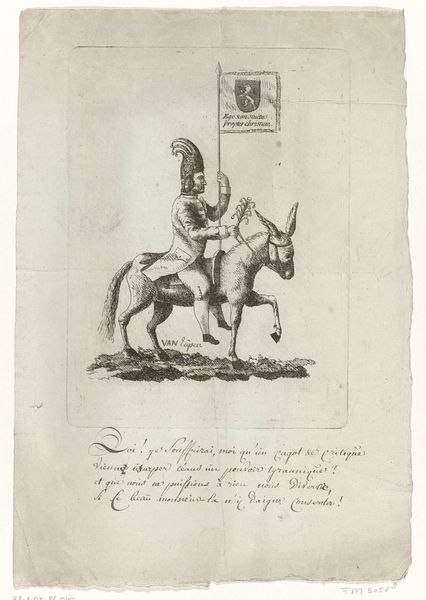 Ego sum stultus
propter christum.
VAN Eupen
Qoi! je Souffrirai, moi qu'un cagot de critique
Vienne usurper ceans un pouvoir tyrannique!
et que nous ne puissions a rien nous Divertir,
Si Ce beau monsieur la n'y Daigne Consentir!